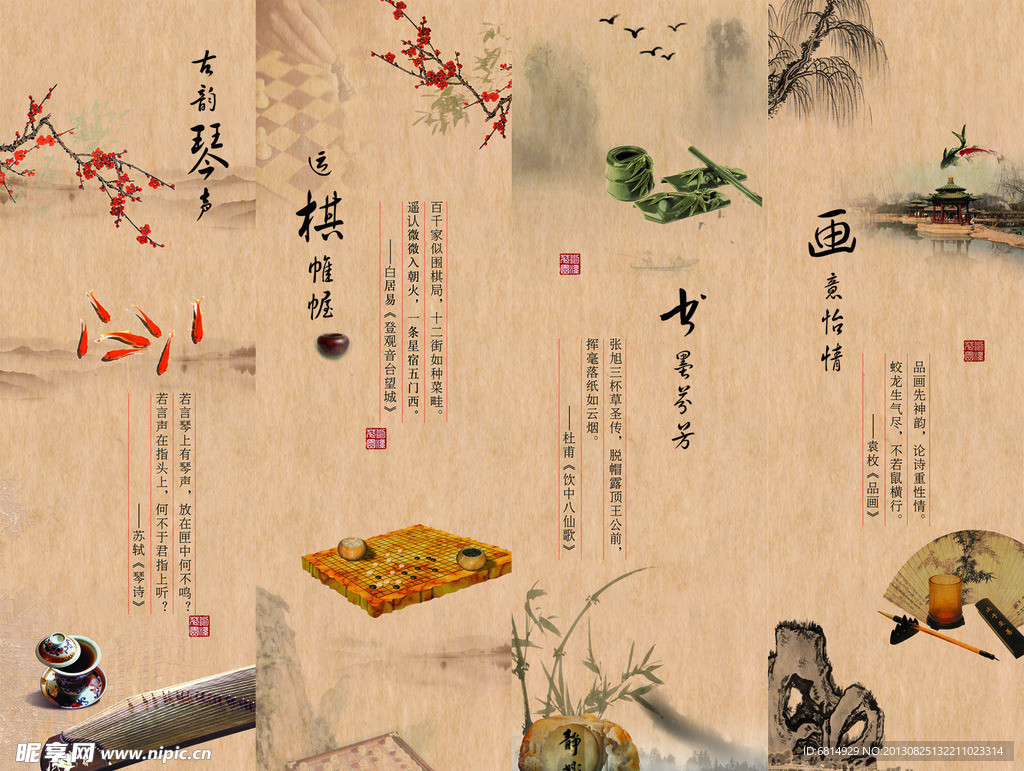 古韵琴声
若言琴上有琴声，放在匣中何不鸣？
若言声在指头上，何不于君指上听？
——苏轼《琴诗》
运棋帷幄
百千家似围棋局，十二街如种菜畦。
遥认微微入朝火，一条星宿五门西。
——白居易《登观音台望城》
书墨芬芳
张旭三杯草圣传，脱帽露顶王公前，
挥毫落纸如云烟。
——杜甫《饮中八仙歌》
静
画意怡情
品画先神韵，论诗重性情。
蛟龙生气尽，不若鼠横行。
——袁枚《品画》
昵享网 www.nipic.cn
ID:6814929 NO:20130825132211023314